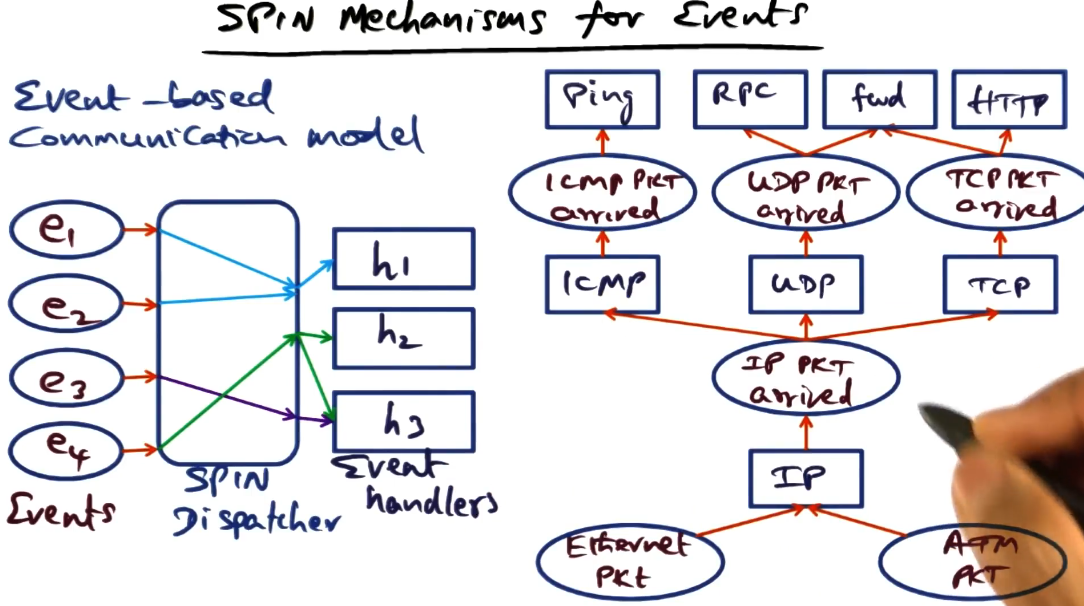 SPIN Mechanisms for Events
Event-based
Communication model
e1
e2
e3
e4
Events
SPIN
Dispatcher
h1
h2
h3
Event
handlers
Ping
RPC
fwd
HTTP
ICMP PKT
arrived
UDP PKT
arrived
TCP PKT
arrived
ICMP
UDP
TCP
IP PKT
arrived
IP
Ethernet
PKt
ATM
PKT